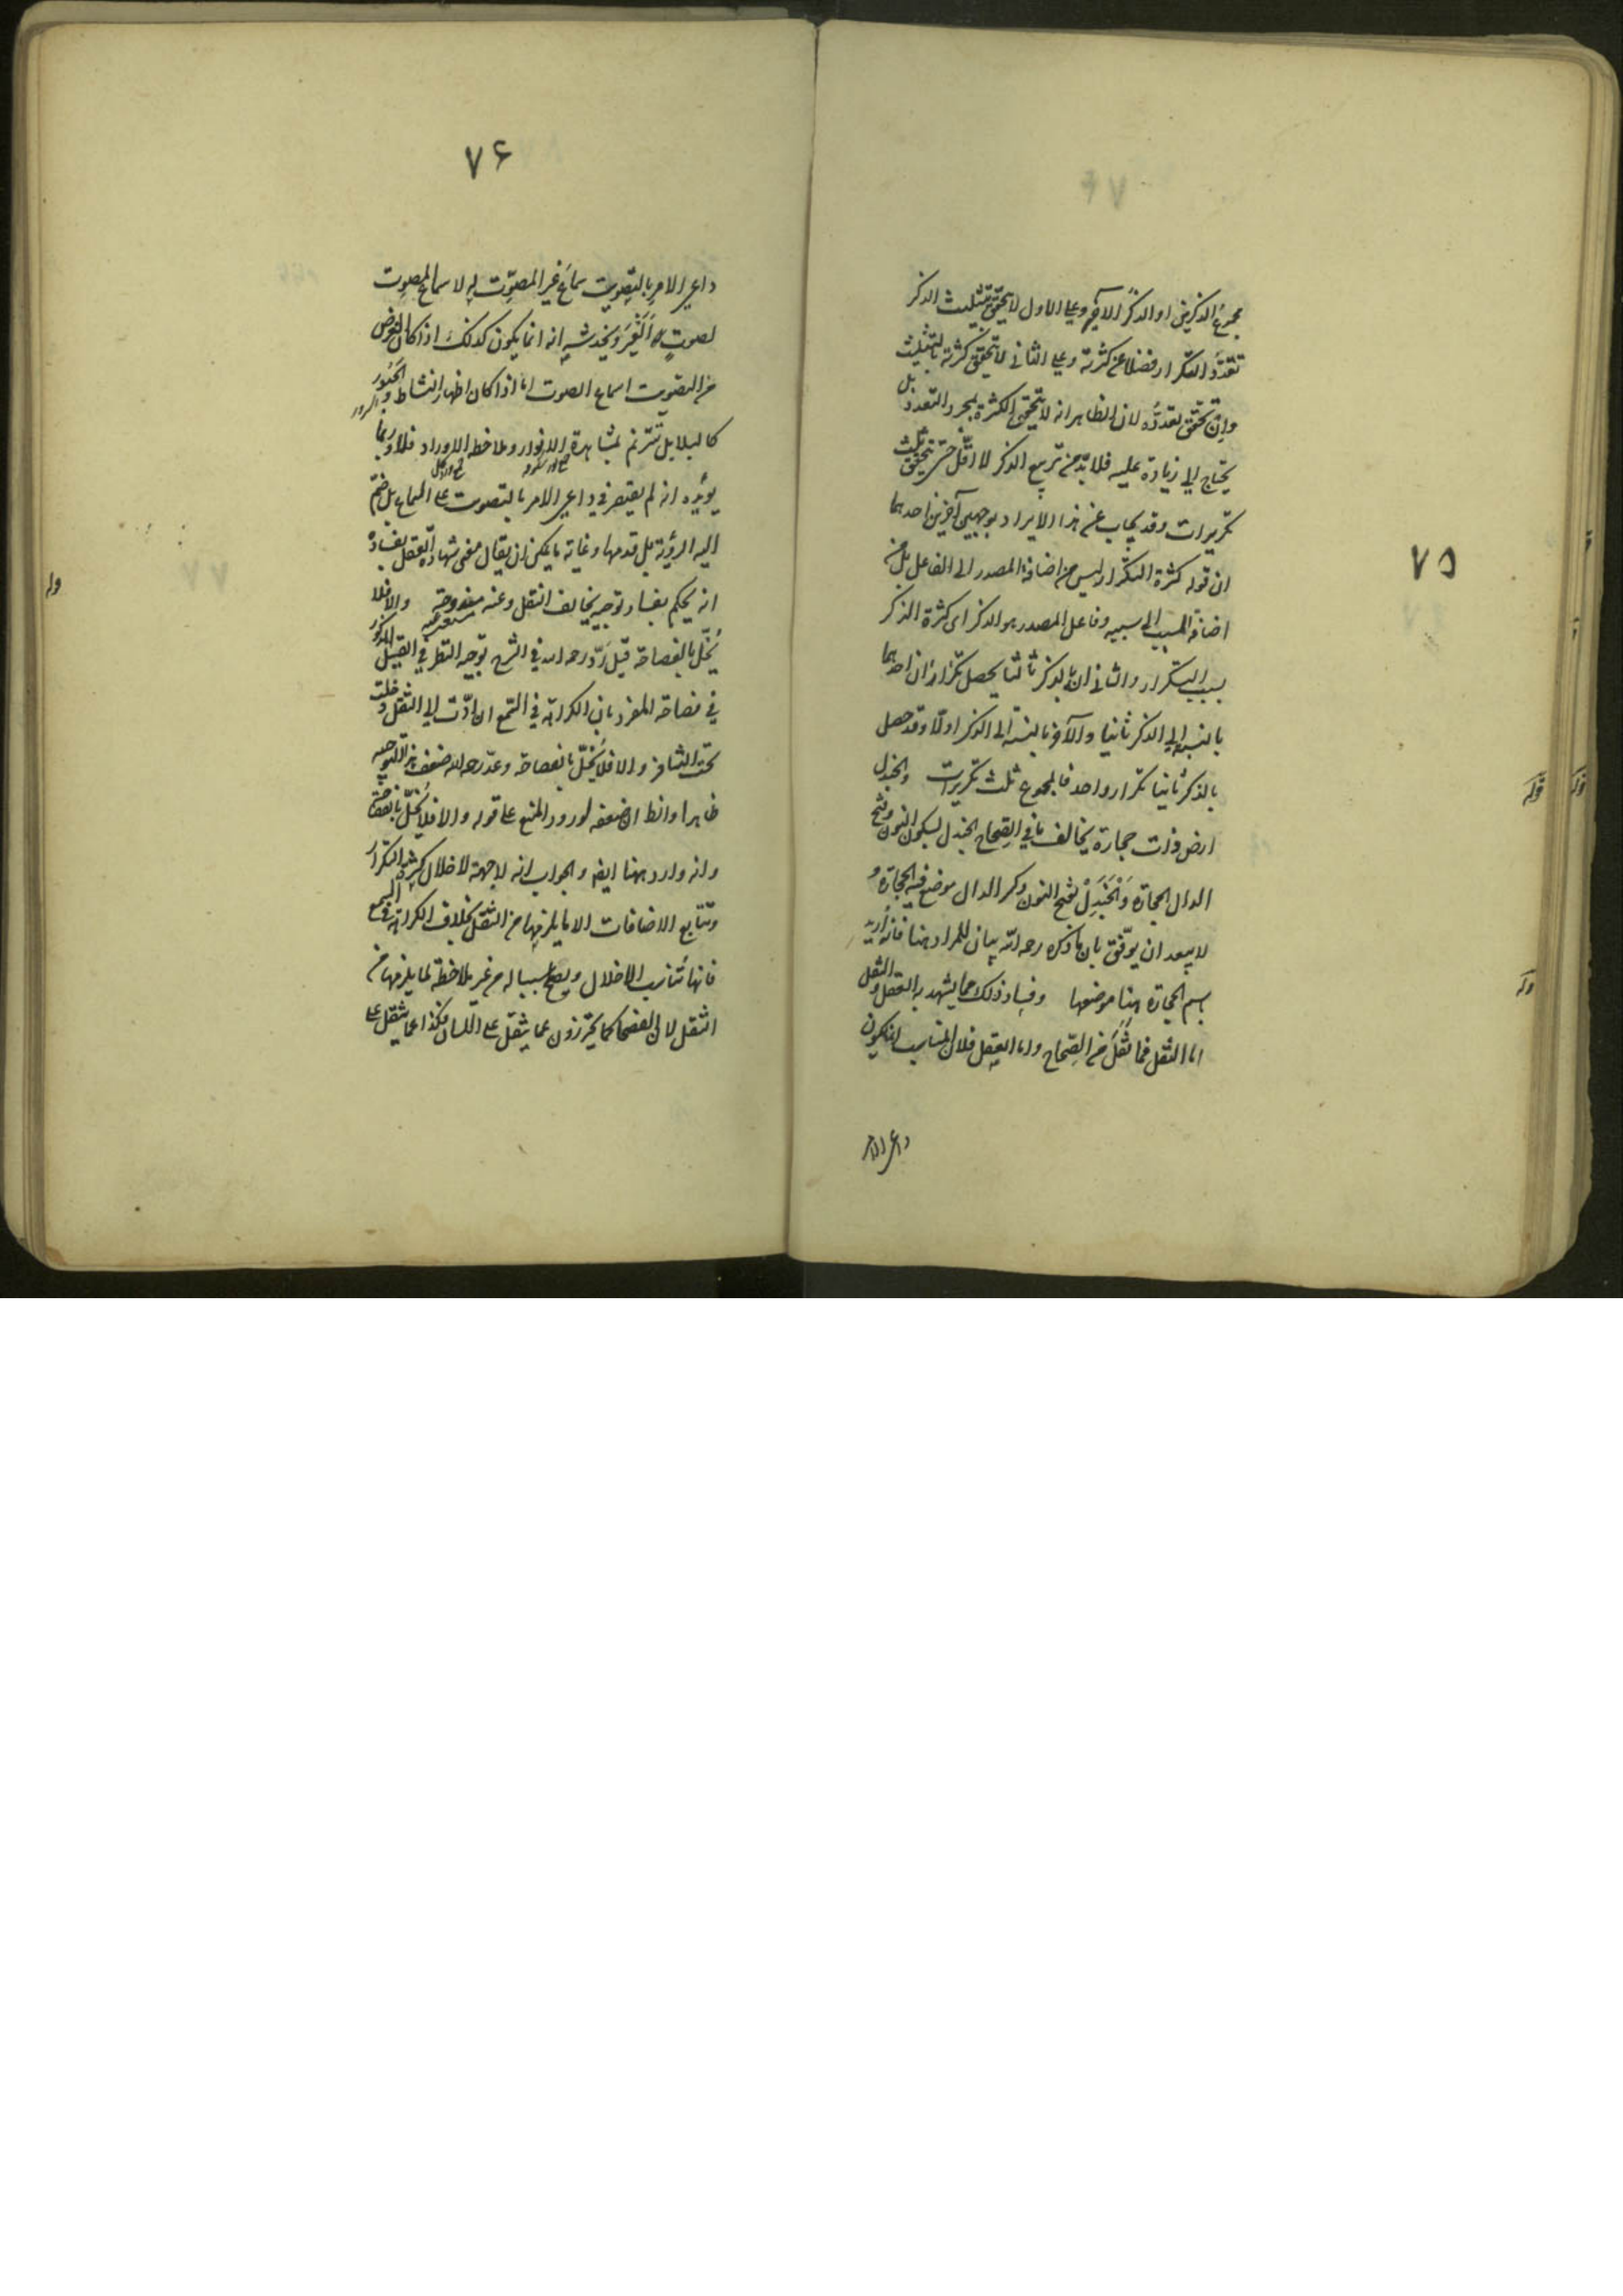 ۷۵
مجموع الذكرين او الذكر الآخر وعلى الاول لا يتحقق بتثليث الذكر
تعدّد التكرار فضلا عن كثرته وعلى الثانى لا يتحقق كثرته بالتثليث
وان تحقق تعدده لان الظاهر انه لا يتحقق الكثرة بمجرد التعدد بل
يحتاج الى زيادة عليه فلا بدّ من تربيع الذكر لا اقلّ حتى يتحقق ثلث
تكريرات وقد يجاب عن هذا الايراد بوجهين آخرين احدهما
ان قوله كثرة التكرار ليس من اضافة المصدر الى الفاعل بل من
اضافة المسبب الى سببه وفاعل المصدر هو الذكر اى كثرة الذكر
بسبب التكرار والثانى ان بالذكر ثالثا يحصل تكراران احدهما
بالنسبة الى الذكر ثانيا والآخر بالنسبة الى الذكر اولا وقد حصل
بالذكر ثانيا تكرار واحد فالمجموع ثلث تكريرات والجندل
ارض ذات حجارة يخالف ما فى الصحاح الجندل بسكون النون وفتح
الدال الحجارة وَالجَنَدِلْ بفتح النون وكسر الدال موضع فيه الحجارة و
لا يبعد ان يوفّق بان ما ذكره رحمه الله بيان للمراد هنا فانه اُريد
باسم الحجارة هنا موضعها وفساد ذلك مما يشهد به العقل والنقل
اما النقل فما نُقِلَ من الصحاح واما العقل فلان المناسب ان يكون
داعى الامر
۷۶
داعى الامر بالتصويت سماعَ غير المصوِّت له لا سماع المصوت
لصوت الغير ويخدشه انه انما يكون كذلك اذا كان الغرض
من التصويت اسماع الصوت اما اذا كان اظهار النشاط والحُبُور والسرور
كالبلابل تترنم بمشاهدة الانوار وملاحظه الاوراد فلا وربما
يؤيده انه لم يقتصر فى داعى الامر بالتصويت على السماع بل ضمّ
اليه الرؤية بل قدمها وغاية ما يمكن ان يقال معنى شهادة العقل بفساده
انه يحكم بفساد توجيه يخالف النقل وعنه مندوحة والا فلا
يُخلّ بالفصاحة قيل رَدّ رحمه الله فى الشرح توجيه النظر فى القيل المذكور
فى فصاحة المفرد بان الكراهة فى السّمع ان ادّت الى الثقل دخلت
تحت التنافر والا فلا يُخلّ بالفصاحة وعدّ رحمه الله ضعف هذا التوجيه
ظاهرا والظ ان ضعفه لورود المنع على قوله والا فلا يُخلّ بالفصاحة
وانه وارد ههنا ايضا والجواب انه لا جهة لاخلال كثرة التكرار
وتتابع الاضافات الا ما يلزمها من الثقل بخلاف الكراهة فى السمع
فانها تناسب الاخلال ويصح سببا له من غير ملاحظة لما يلزمها من
الثقل لان الفصحاء كما يحترزون عما يثقل على اللسان فكذا عما يثقل على